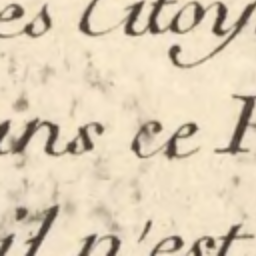 es Citoy
ins ce
il n'est